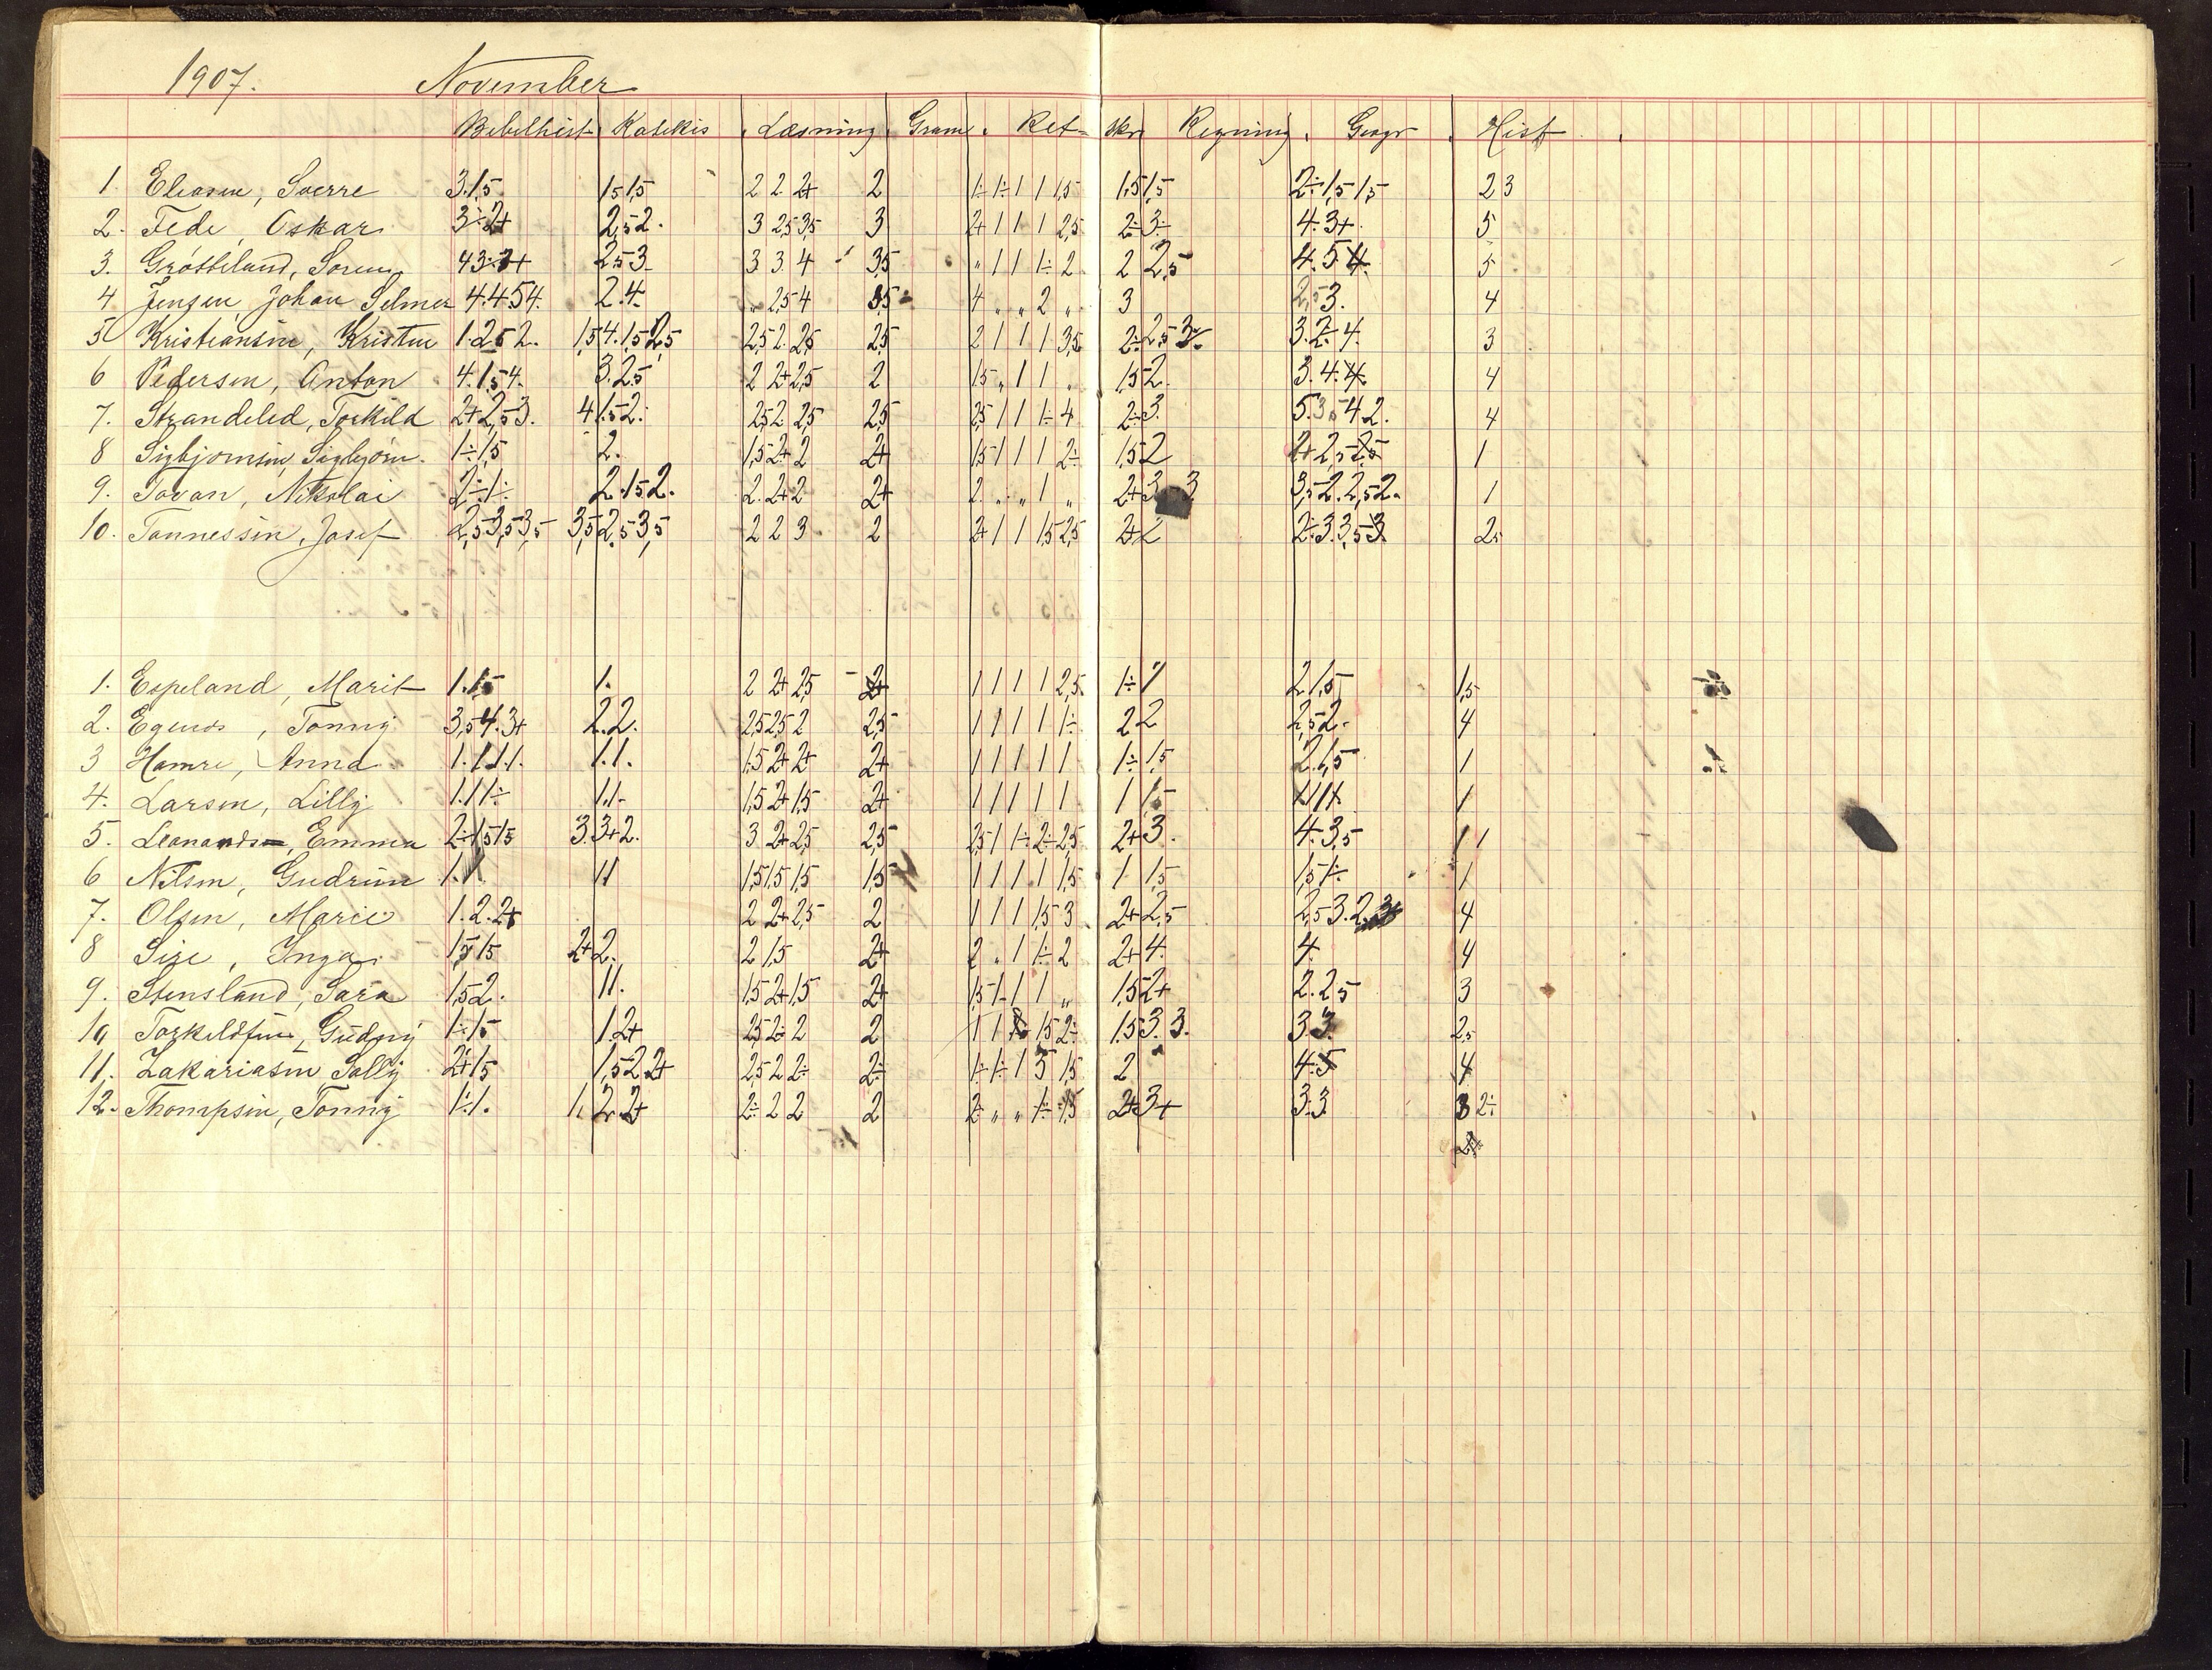 1907. November
Bibelhist. Katekis. Læsning. Gram. Ret- Skr. Regning. Geogr. Hist.
1. Eliasen, Sverre 3.1,5 1,5 1,5 2 2 2+ 2 1÷ 1÷ 1 1 1,5 1,5 1,5 2÷ 1,5 1,5 2 3
2. Fede, Oskar 3÷ 2+ 2,5 2. 3 2,5 3,5 3 2+ 1 1 1 2,5 2÷ 3÷ 4.3+. 5
3. Grøtteland, Søren 4 3 2,5 3 3 3 4 3,5 " 1 1 1÷ 2 2 2,5 4.5 4. 5
4 Jensen, Johan Selmer 4.4.5 4. 2.4. " 2,5 4 3,5 4 " " 2 " 3 2,5 3. 4
5 Kristiansen, Kristen 1.2,5 2. 1,5 4.1,5 2,5 2,5 2 2,5 2,5 2 1 1 1 3,5 2÷ 2,5 3. 3.2.4. 3
6 Pedersen, Anton 4.1,5 4. 3.2,5 2 2+ 2,5 2 1,5 " 1 1 " 1,5 2. 3.4.4. 4
7. Strandeled, Torkild 2+ 2,5 3. 4 1,5 2. 2,5 2 2,5 2,5 2,5 1 1 1÷ 4 2÷ 3. 5.3,5 4 2. 4
8 Sigbjørnsen, Sigbjørn. 1÷ 1,5 2. 1,5 2+ 2 2+ 1,5 1 1 1 2÷ 1,5 2 2+ 2,5 2,5 1
9. Tovan, Nikolai 2÷ 1÷ 2.1,5 2. 2. 2+ 2 2+ 2. " " 1 " 2+ 3 3 3,5 2.2,5 2. 1
10. Tønnessen, Josef 2,5 3,5 3,5 3,5 2,5 3,5 2 2 3 2 2+ 1 1 1,5 2,5 2+ 2 2÷ 3.3,5 3. 2,5
1. Espeland, Marit 1.1,5 1. 2 2+ 2,5 2+ 1 1 1 1 2,5 1÷ 1 2 1,5 1,5
2. , Tonny 3,5 4.3+ 2.2. 2,5 2,5 2 2,5 1 1 1 1 1÷ 2 2 2,5 2. 4
3 Hamre, Anna 1.1.1.1. 1.1. 1,5 2+ 2+ 2+ 1 1 1 1 1 1÷ 1,5 2.1,5 1
4. Larsen, Lilly 1.1 1÷ 1.1. 1,5 2+ 1,5 2+ 1 1 1 1 1 1 1,5 1 1 1. 1
5. Leonardsen, Emma 2÷ 1,5 1,5 3.3+2. 3 2+ 2,5 2,5 2,5 1 1÷ 2÷ 2,5 2+ 3. 4.3,5 1 1
6 Nilsen, Gudrun 1.1 1 1 1,5 1,5 1,5 1,5 1 1 1 1 1,5 1 1,5 1,5 1÷ 1
7. Olsen, Marie 1.2.2+ 2 2+ 2,5 2 1 1 1 1,5 3 2+ 2,5 2,5 3.2. 4
8 Sire, Inga 1,5 1,5 2+ 2. 2 1,5 2+ 2 " 1 1÷ 2 2+ 4. 4. 4
9. Stensland, Sara 1,5 2. 1 1. 1,5 2+ 1,5 2+ 1,5 1 1 1 " 1,5 2+ 2.2,5 3
10 Torkildsen, Gudny 1÷ 1,5 1.2+ 2,5 2÷ 2 2 1 1 1,5 2÷ 1,5 3.3. 3.3. 2,5
11. Zakariasen Solly 2+ 1,5 1,5 2 2+ 2,5 2 2÷ 2÷ 1÷ 1÷ 1 3 1,5 2 4.5 4
12. Thompsen, Tonny 1÷ 1. 1. 2.2+ 2÷ 2 2 2 2÷ " " 1÷ 1,5 2+ 3+ 3.3. 3 2÷